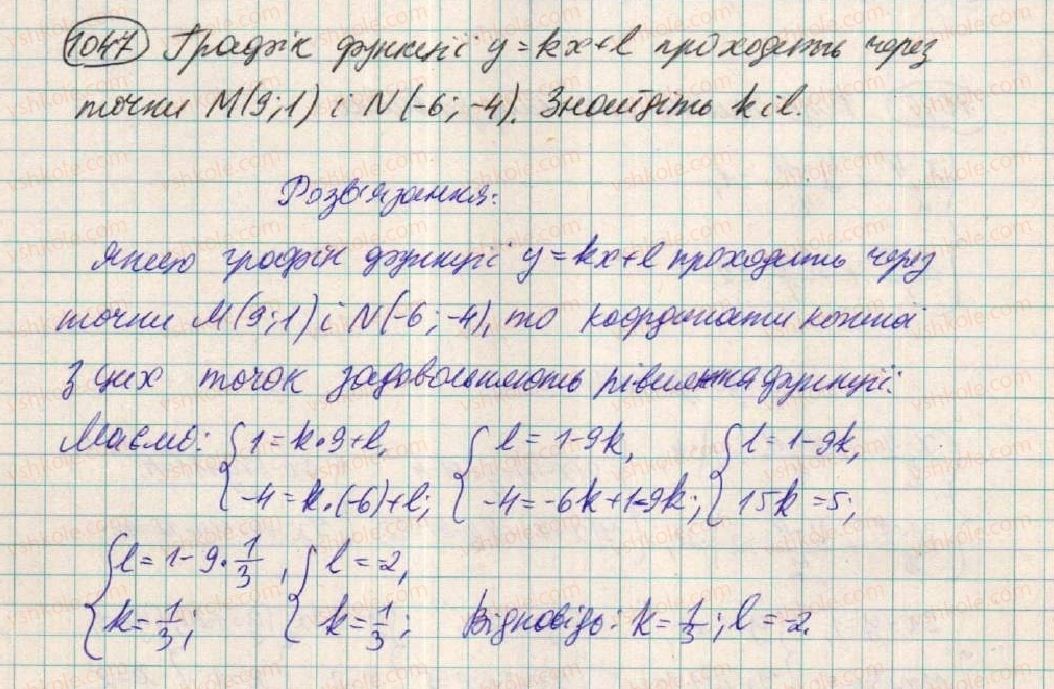 1047 Графік функції y=kx+l проходить через
точки M(9;1) і N(-6;-4). Знайдіть k і l.
Розв'язання:
Якщо графік функції y=kx+l проходить через
точки M(9;1) і N(-6;-4), то координати кожної
з цих точок задовольняють рівняння функції.
Маємо: { 1=k•9+l, { l=1-9k, { l=1-9k,
-4=k•(-6)+l; -4=-6k+1-9k; 15k=5;
{ l=1-9•1/3, { l=-2,
k=1/3; k=1/3; Відповідь: k=1/3; l=-2.